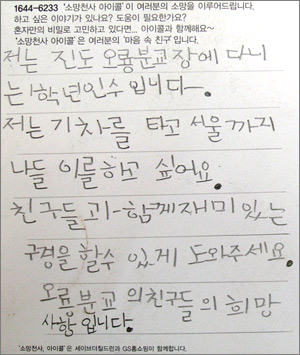 1644-6233 '소망천사 아이콜' 이 여러분의 소망을 이루어드립니다.
하고 싶은 이야기가 있나요? 도움이 필요한가요?
혼자만의 비밀로 고민하고 있다면... 아이콜과 함께해요~
'소망천사 아이콜' 은 여러분의 '마음 속 친구' 입니다.
저는 진도 오룡분교장에 다니
는 1학년인수 입니다~.
저는 기차를 타고 서울까지
나들 이를하고 싶어요.
친구들 고l-함께재미 있는
구경을 할수 있게 도와주세요.
오룡분교 의친구들의 희망
사항 입니다.
'소망천사, 아이콜' 은 세이브더칠드런과 GS홈쇼핑이 함께합니다.